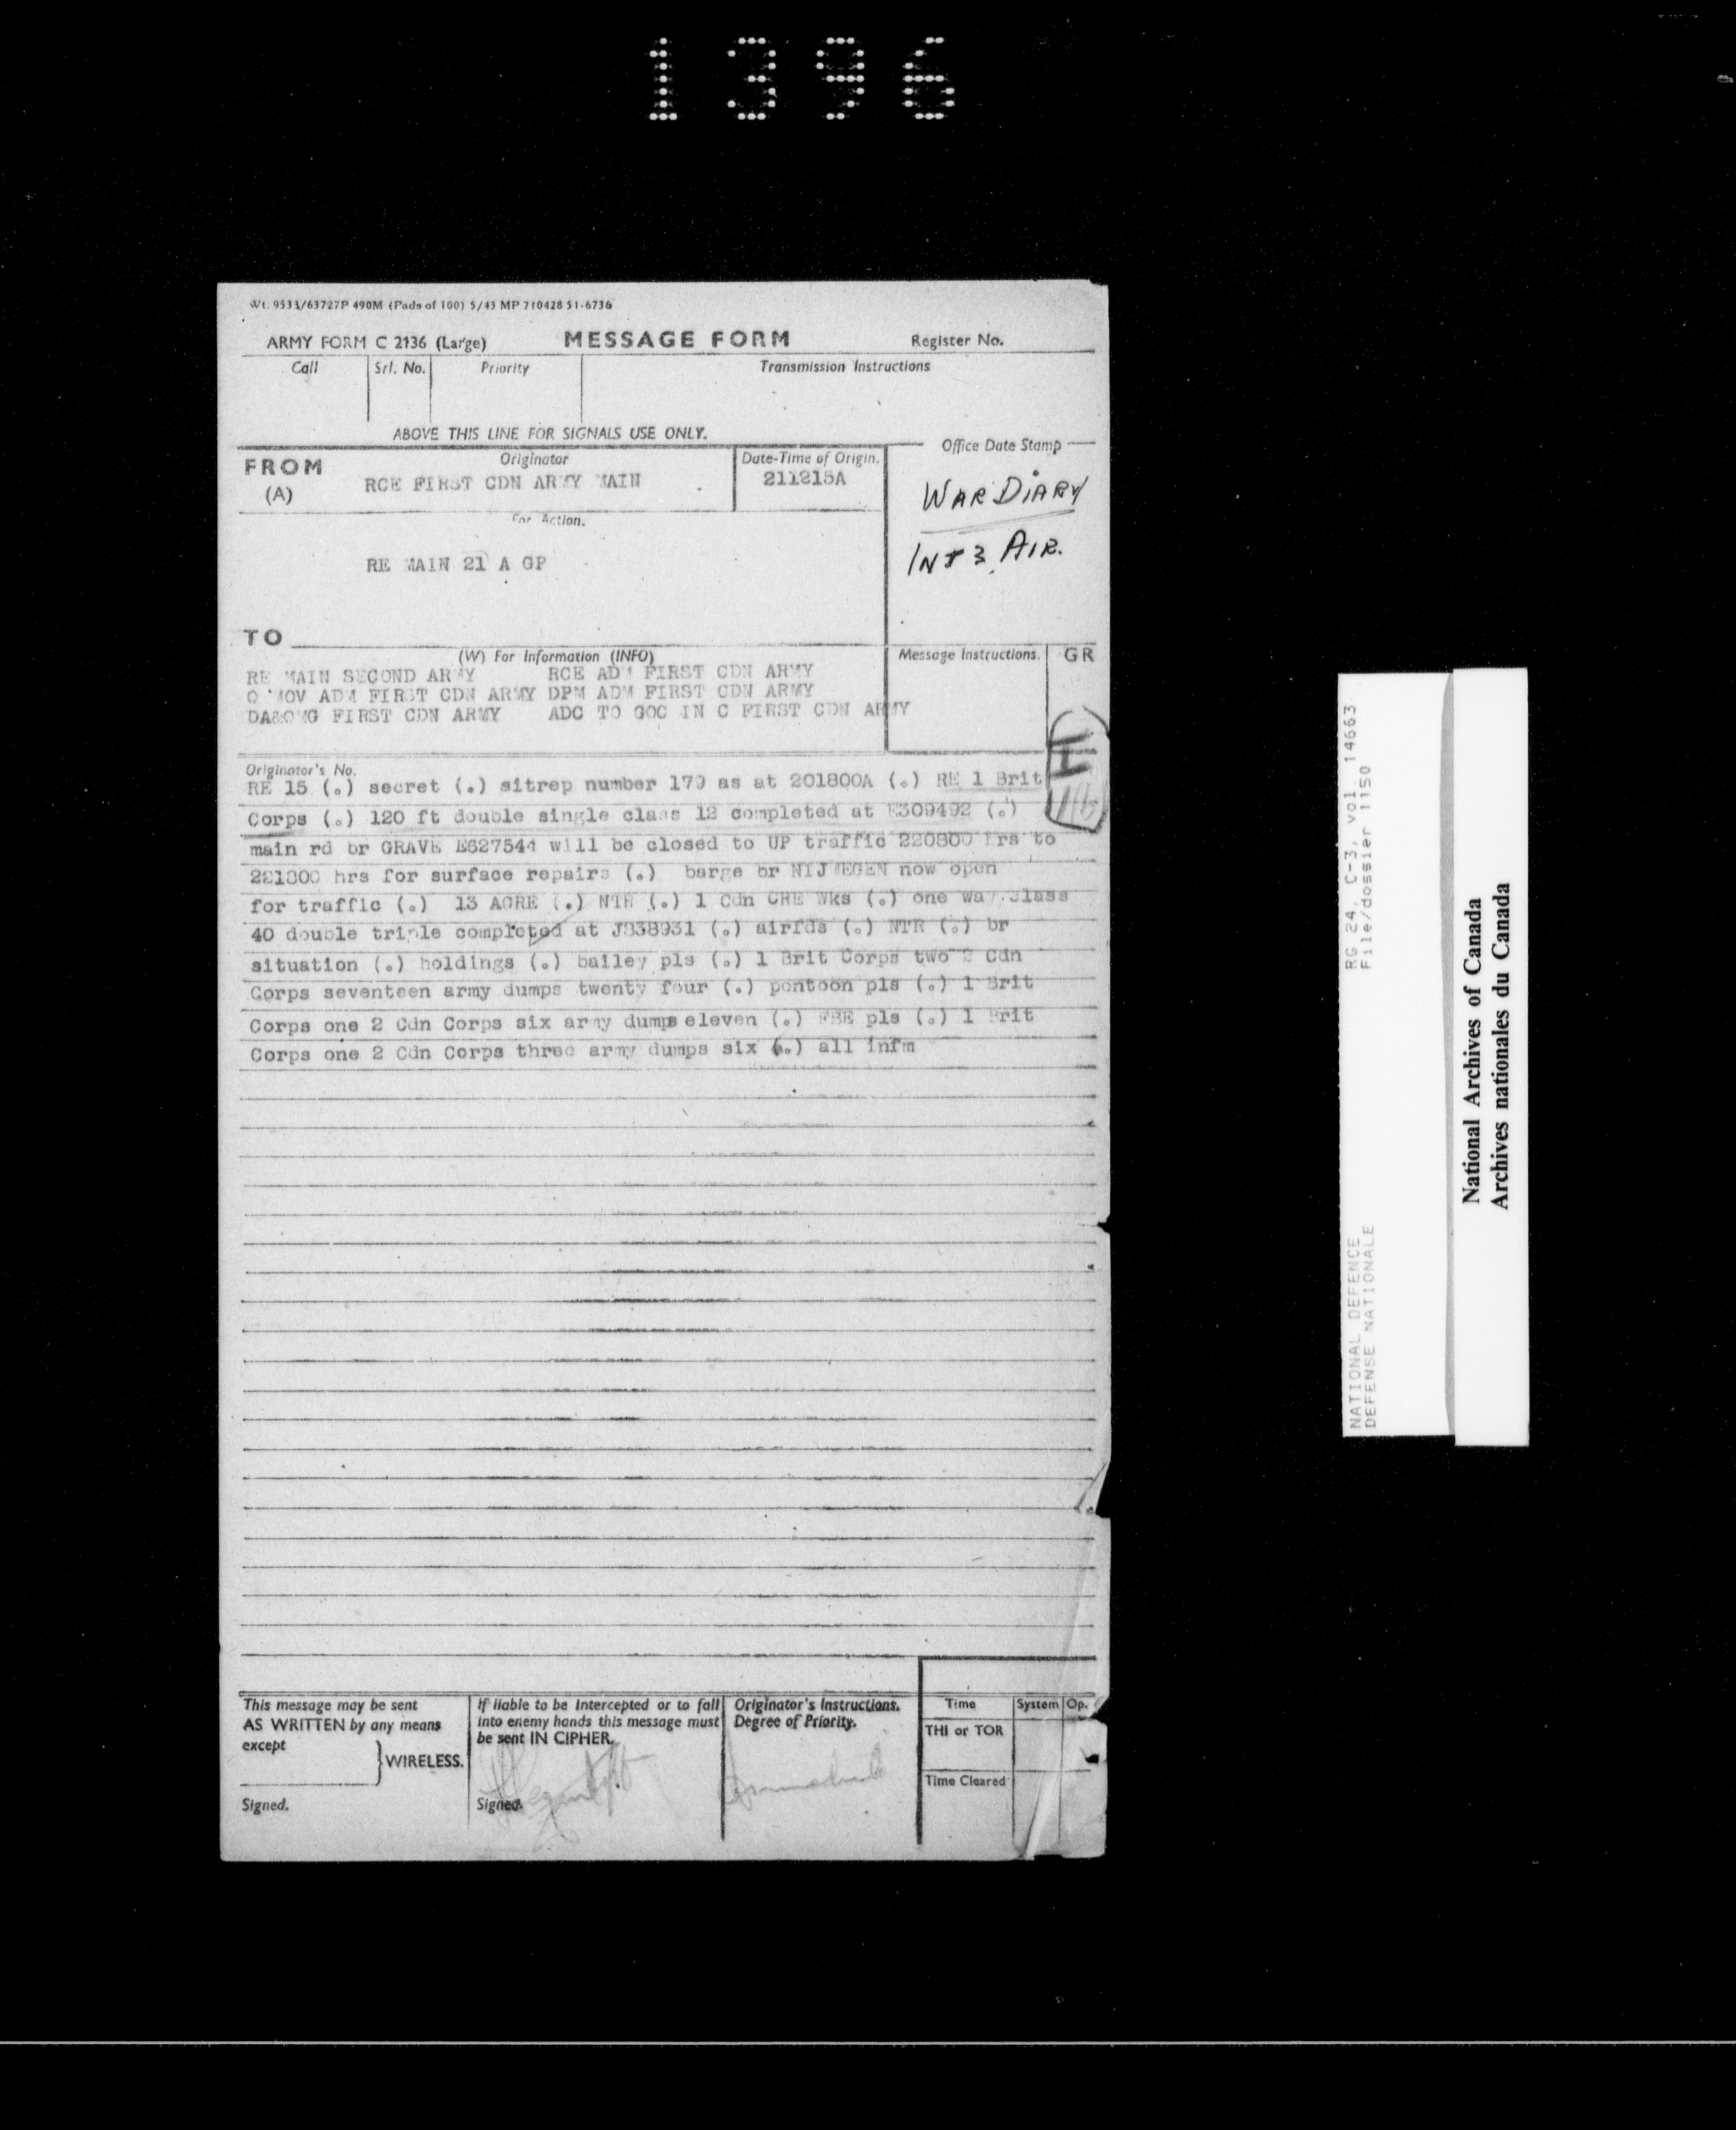 1396
Wt. 9533/63727P 490M (Pads of 100) 5/43 MP 710428 51-6736
ARMY FORM C 2136 (Large) MESSAGE FORM Register No.
Call Srl. No. Priority Transmission Instructions
ABOVE THIS LINE FOR SIGNALS USE ONLY.
FROM (A) Originator Date-Time of Origin. Office Date Stamp
RCE FIRST CDN ARMY MAIN 211215A
WAR DIARY
For Action.
INT 3 AIR.
RE MAIN 21 A GP
TO
(W) For Information (INFO) Message Instructions. GR
RE MAIN SECOND ARMY RCE ADM FIRST CDN ARMY
Q MOV ADM FIRST CDN ARMY DPM ADM FIRST CDN ARMY
DA&QMG FIRST CDN ARMY ADC TO GOC IN C FIRST CDN ARMY
Originator's No.
RE 15 (.) secret (.) sitrep number 179 as at 201800A (.) RE 1 Brit
Corps (.) 120 ft double single class 12 completed at E309492 (.)
main rd br GRAVE E627544 will be closed to UP traffic 220800 hrs to
221800 hrs for surface repairs (.) barge br NIJMEGEN now open
for traffic (.) 13 AGRE (.) NTR (.) 1 Cdn CRE Wks (.) one way class
40 double triple completed at J838931 (.) airfds (.) NTR (.) br
situation (.) holdings (.) bailey pls (.) 1 Brit Corps two 2 Cdn
Corps seventeen army dumps twenty four (.) pontoon pls (.) 1 Brit
Corps one 2 Cdn Corps six army dumps eleven (.) FBE pls (.) 1 Brit
Corps one 2 Cdn Corps three army dumps six (.) all infm
This message may be sent
AS WRITTEN by any means
except
WIRELESS.
Signed.
If liable to be intercepted or to fall
into enemy hands this message must
be sent IN CIPHER.
Signed.
Originator's Instructions.
Degree of Priority.
Immediate
Time System Op.
THI or TOR
Time Cleared
NATIONAL DEFENCE RG 24, C-3, vol. 14663
DEFENSE NATIONALE File/dossier 1150
National Archives of Canada
Archives nationales du Canada